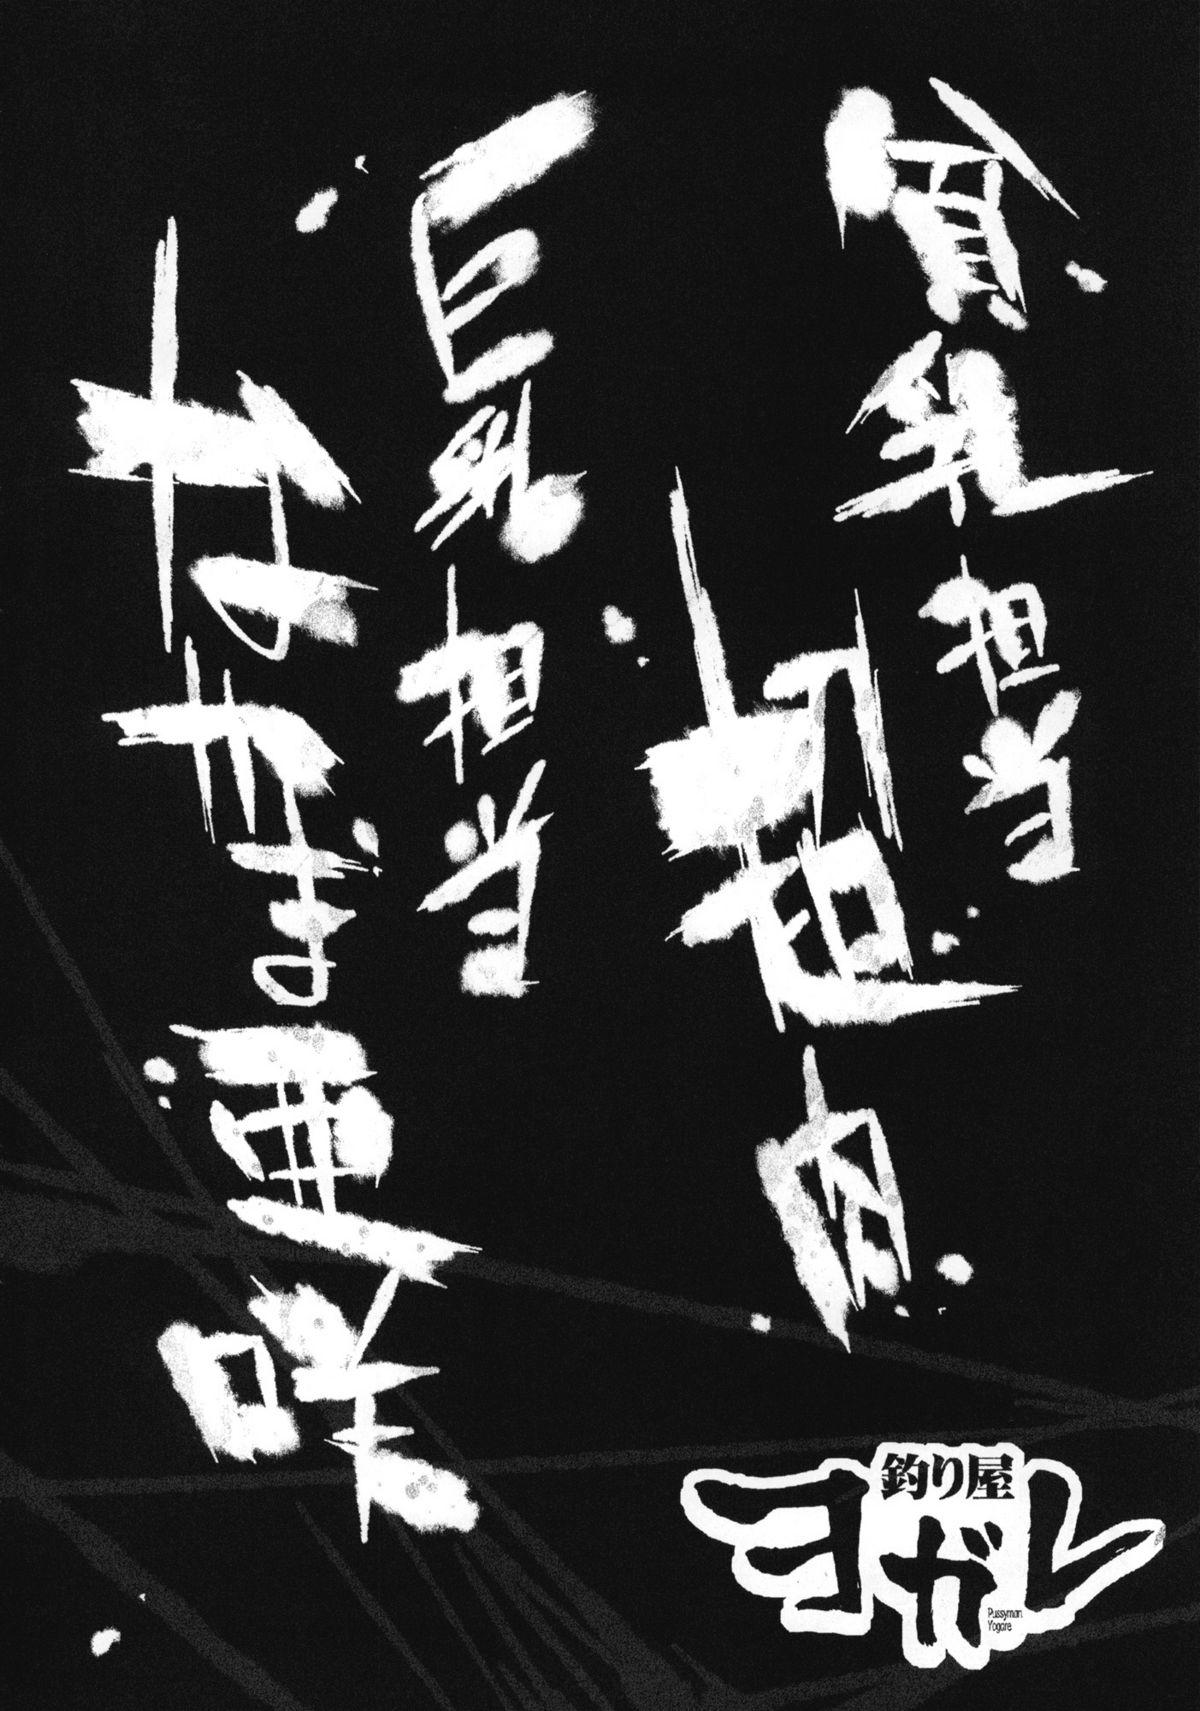 貧乳担当
超肉
巨乳担当
なかま亜咲
釣り屋
ヨガレ
Pussyman
Yogare